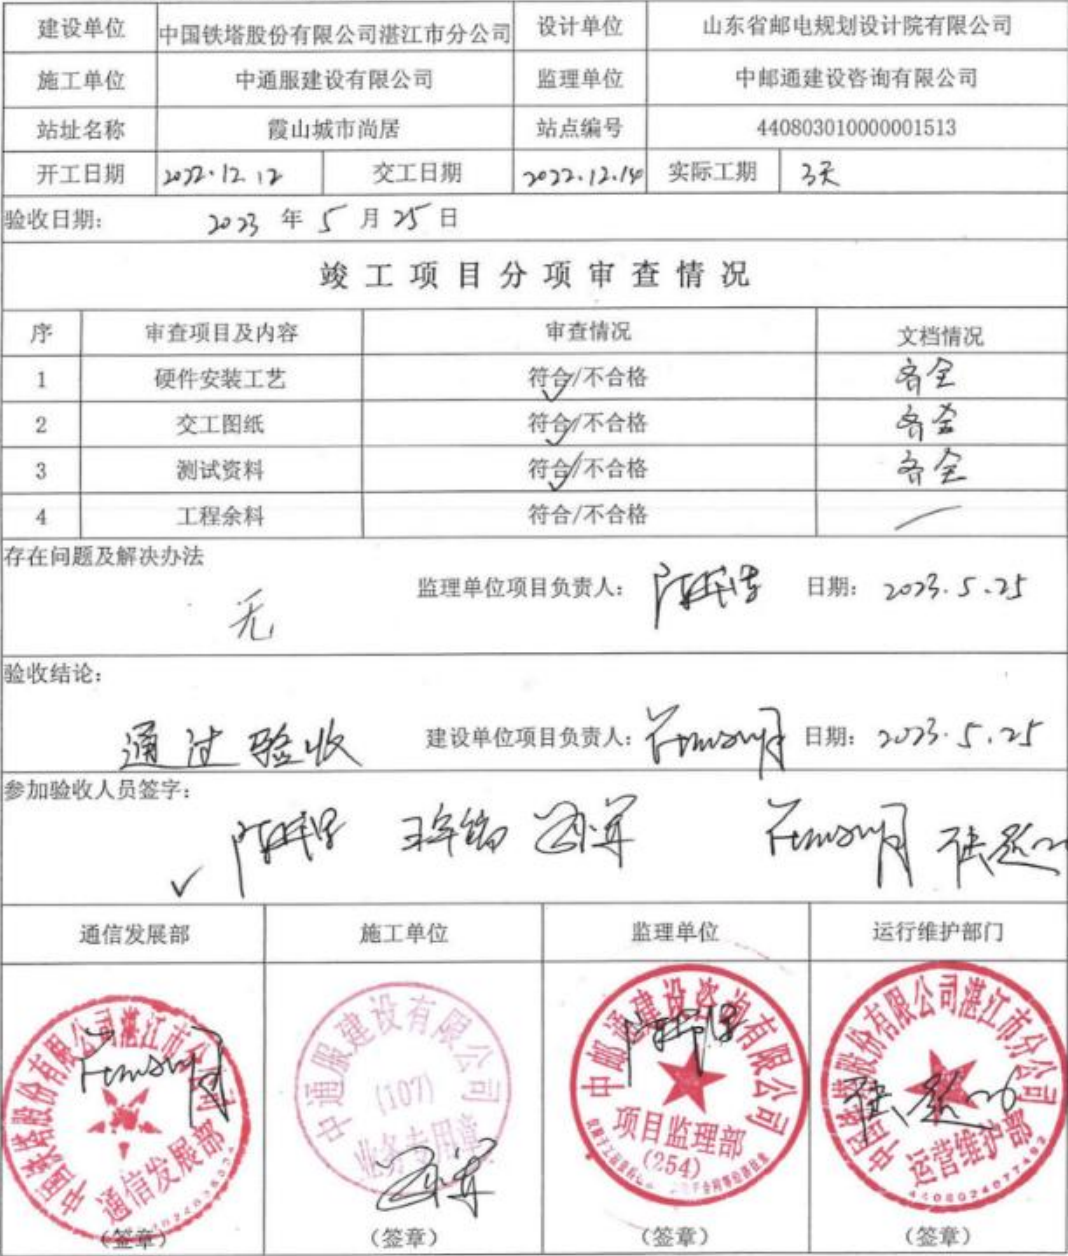 建设单位 中国铁塔股份有限公司湛江市分公司 设计单位 山东省邮电规划设计院有限公司
施工单位 中通服建设有限公司 监理单位 中邮通建设咨询有限公司
站址名称 霞山城市尚居 站点编号 440803010000001513
开工日期 2022.12.12 交工日期 2022.12.14 实际工期 3天
验收日期: 2023 年 5 月 25 日
竣工项目分项审查情况
序 审查项目及内容 审查情况 文档情况
1 硬件安装工艺 符合/不合格 齐全
2 交工图纸 符合/不合格 齐全
3 测试资料 符合/不合格 齐全
4 工程余料 符合/不合格
存在问题及解决办法
无 监理单位项目负责人: 日期: 2023.5.25
验收结论:
通过验收 建设单位项目负责人: 日期: 2023.5.25
参加验收人员签字:
通信发展部 施工单位 监理单位 运行维护部门
中国铁塔股份有限公司湛江市分公司
通信发展部
中通服建设有限公司
(107)
业务专用章
中邮通建设咨询有限公司
项目监理部
(254)
中国铁塔股份有限公司湛江市分公司
运营维护部
4408024077492
(签章) (签章) (签章) (签章)